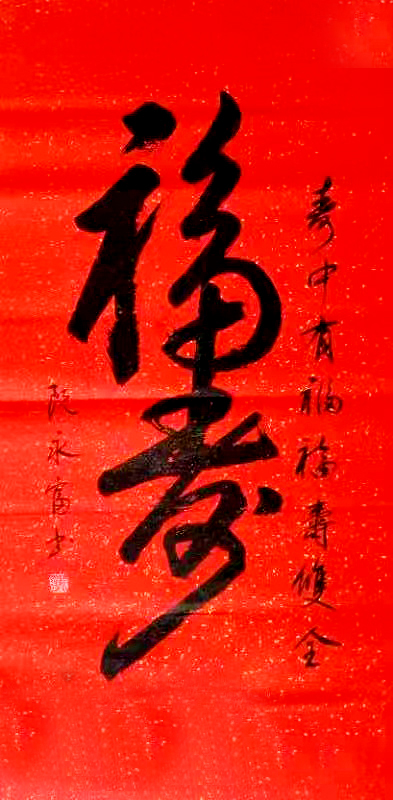 寿中有福福壽雙全
福寿
阮永富书